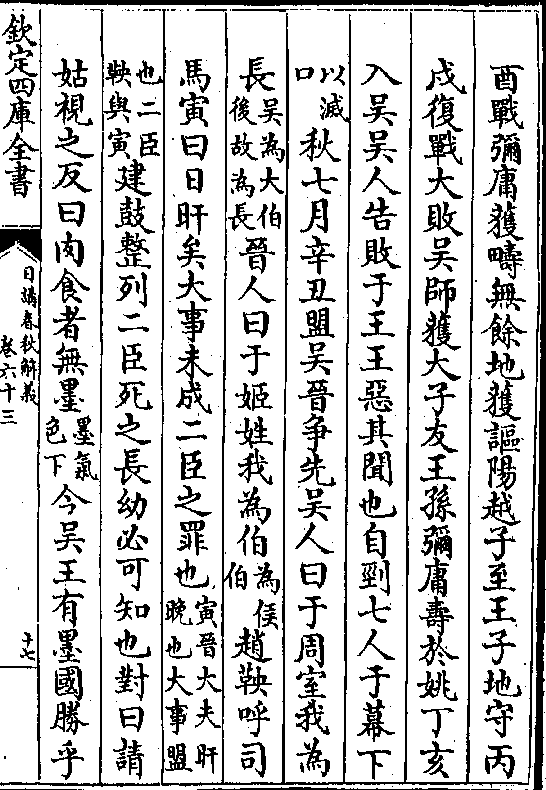 酉戰彌庸獲疇無餘地獲謳陽越子至王子地守丙
戌復戰大敗吳師獲大子友王孫彌庸壽於姚丁亥
入吳吳人告敗于王王惡其聞也自剄七人于幕下
以滅口秋七月辛丑盟吳晉争先吳人曰于周室我為
長吳為大伯後故為長晉人曰于姬姓我為伯為侯伯趙鞅呼司
馬寅曰日旰矣大事未成二臣之罪也寅晉大夫旰晚也大事盟
也二臣鞅與寅建鼓整列二臣死之長幼必可知也對曰請
姑視之反曰肉食者無墨墨氣色下今吳王有墨國勝乎
欽定四庫全書
日講春秋解義
卷六十三
十七